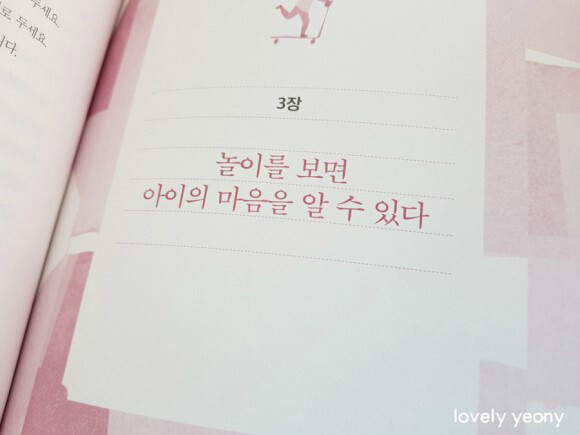 로 두세요.
3장
놀이를 보면
아이의 마음을 알 수 있다
lovely yeony